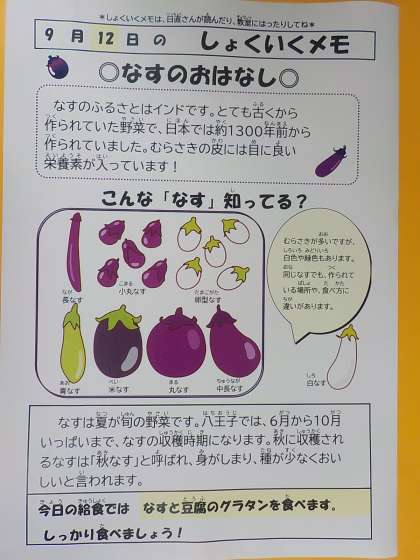 ＊しょくいくメモは、日直さんが読んだり、教室にはったりしてね＊
9月12日の しょくいくメモ
◎なすのおはなし◎
なすのふるさとはインドです。とても古くから
作られていた野菜で、日本では約1300年前から
作られていました。むらさきの皮には目に良い
栄養素が入っています！
こんな「なす」知ってる？
むらさきが多いですが、
白色や緑色もあります。
同じなすでも、作られて
いる場所や、食べ方に
違いがあります。
長なす 小丸なす 卵型なす
青なす 米なす 丸なす 中長なす
白なす
なすは夏が旬の野菜です。八王子では、6月から10月
いっぱいまで、なすの収穫時期になります。秋に収穫され
るなすは「秋なす」と呼ばれ、身がしまり、種が少なくおい
しいと言われます。
今日の給食では なすと豆腐のグラタンを食べます。
しっかり食べましょう！